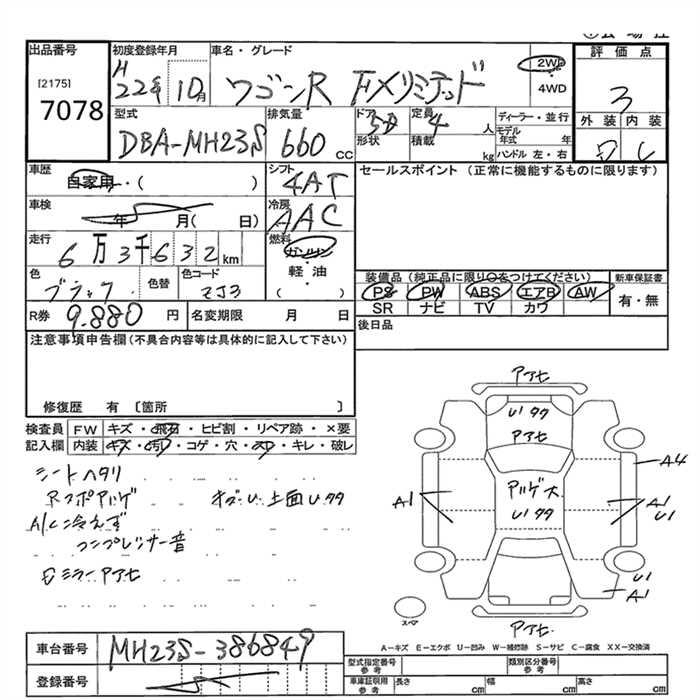 出品番号 初度登録年月 車名・グレード 評価点
[2175] H22年 10月 ワゴンR FXリミテッド 2WD ・ 4WD 3
7078
型式 排気量 ドア 定員 ディーラー・並行 外装 内装
DBA-MH23S 660cc 5D 4人 モデル年式 年 D C
形状 積載 kg ハンドル 左・右
車歴 自家用・( ) シフト 4AT セールスポイント (正常に機能するものに限ります)
車検 年 月( 日) 冷房 AAC
走行 6万3千632km 燃料 ガソリン
軽・油
( )
色 ブラック 色替 色コード ZJ3
装備品(純正品に限り○をつけてください) 新車保証書
PS PW ABS エアB AW 有・無
SR ナビ TV カワ
R券 9.880円 名変期限 月 日 後日品
注意事項申告欄(不具合内容等は具体的に記入して下さい)
修復歴 有 〔箇所 〕
検査員 FW キズ・飛石・ヒビ割・リペア跡・×要
記入欄 内装 キズ・汚れ・コゲ・穴・スレ・キレ・破レ
シートヘタリ
A/C冷えず
コンプレッサー音
アアセ
U1 タタ
アアセ
A4
A1
A1
U1
U1
A1
アアセ
スペア
A-キズ E-エクボ U-凹み W-補修跡 S-サビ C-腐食 XX-交換済
車台番号 MH23S-386849
登録番号
型式指定番号 参考 類別区分番号 参考
車庫証明用 参考 長さ cm 幅 cm 高さ cm